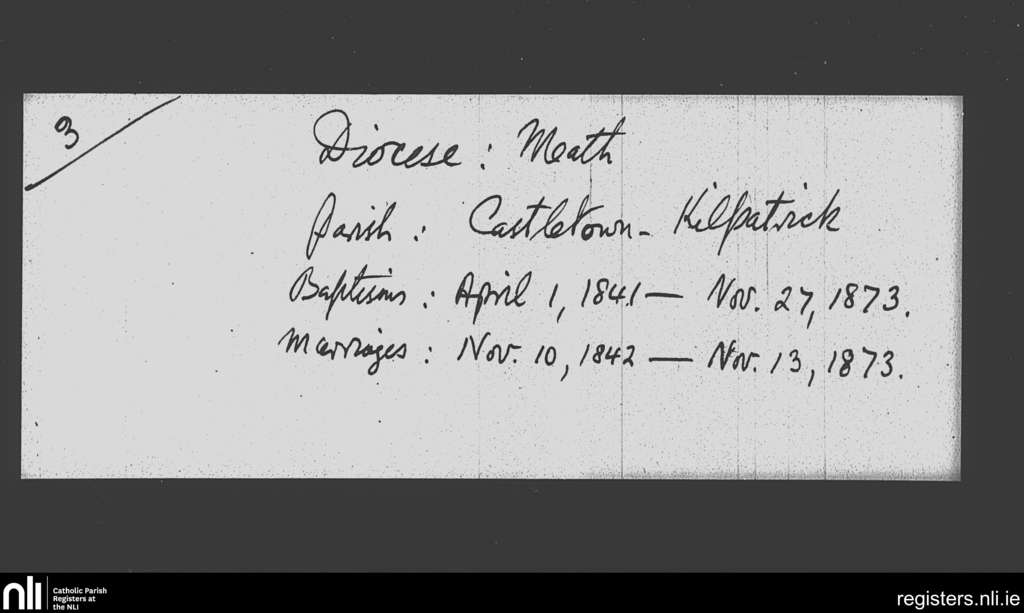 3
Diocese : Meath
Parish : Castletown - Kilpatrick
Baptisms : April 1, 1841 — Nov. 27, 1873.
Marriages : Nov. 10, 1842 — Nov. 13, 1873.
nli
Catholic Parish
Registers at
the NLI
registers.nli.ie